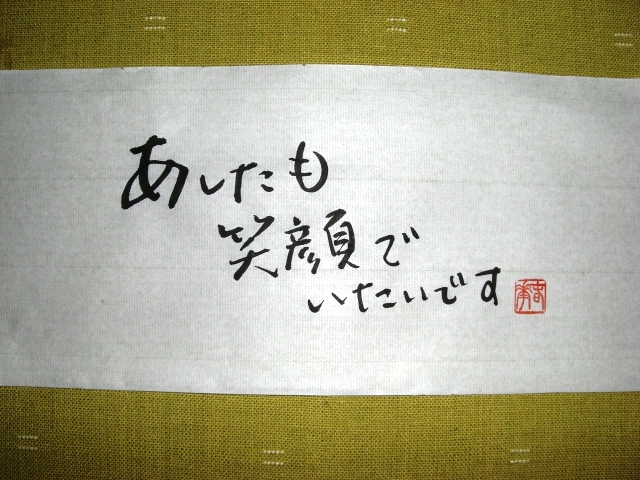 あしたも
笑顔で
いたいです